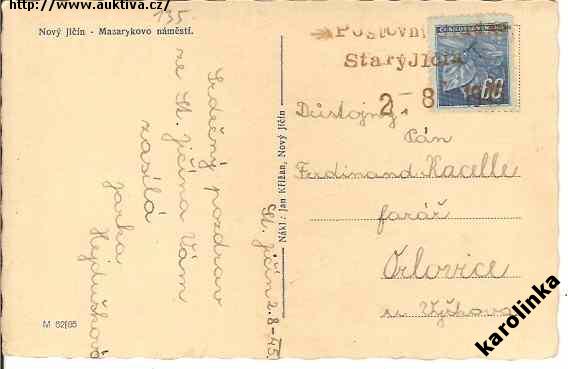 http://www.auktiva.cz/
135
Nový Jičín - Masarykovo náměstí.
Srdečný pozdrav
ze St. Jičína Vám
zasílá
Jarka
Hejdušková
St. Jičín 2.8-45
M 62|65
Nákl.: Jan Křižan, Nový Jičín
Poštovní
Starý Jičín
2 - 8
ČESKOSLOVENSKO
60
Důstojný
Pán
Ferdinand Kacelle
farář
Orlovice
u Vyškova
karolinka